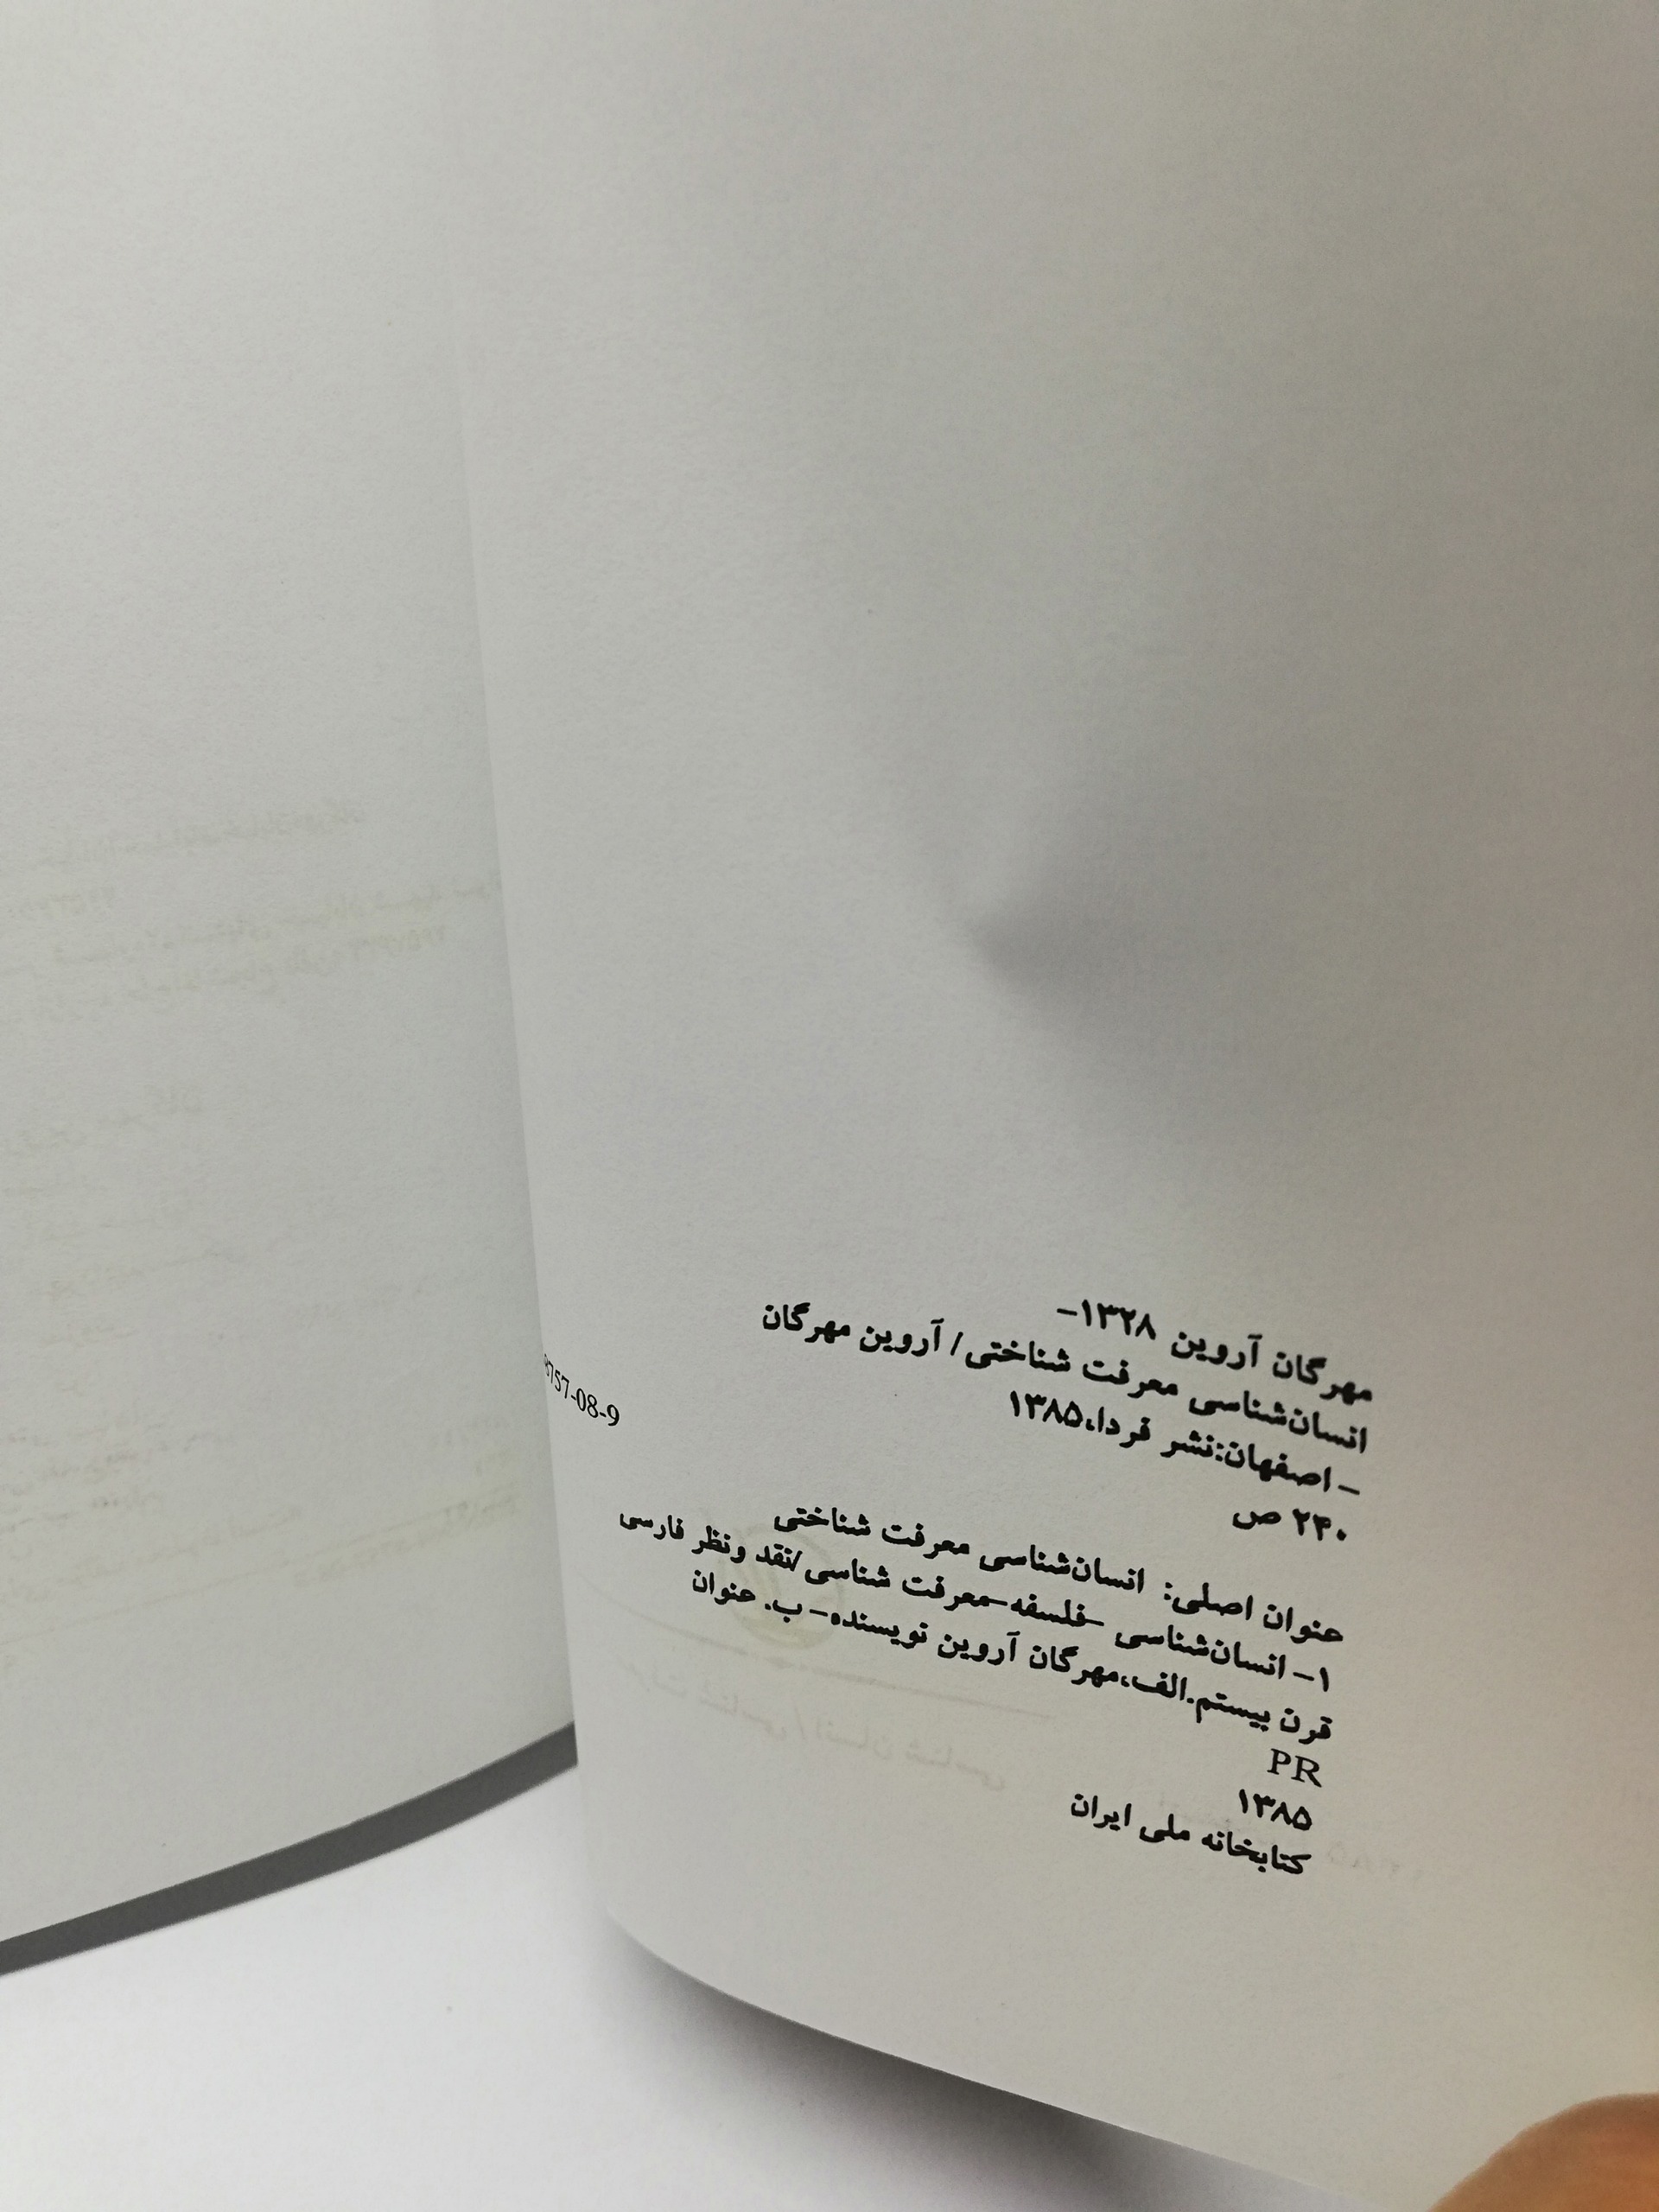 مهرگان آروین ۱۳۲۸-
انسان‌شناسی معرفت شناختی/ آروین مهرگان
- اصفهان:نشر فردا،۱۳۸۵
۲۴۰ ص
8757-08-9
عنوان اصلی: انسان‌شناسی معرفت شناختی
۱- انسان‌شناسی -فلسفه-معرفت شناسی/نقد ونظر فارسی
قرن بیستم.الف،مهرگان آروین نویسنده- ب. عنوان
PR
۱۳۸۵
کتابخانه ملی ایران